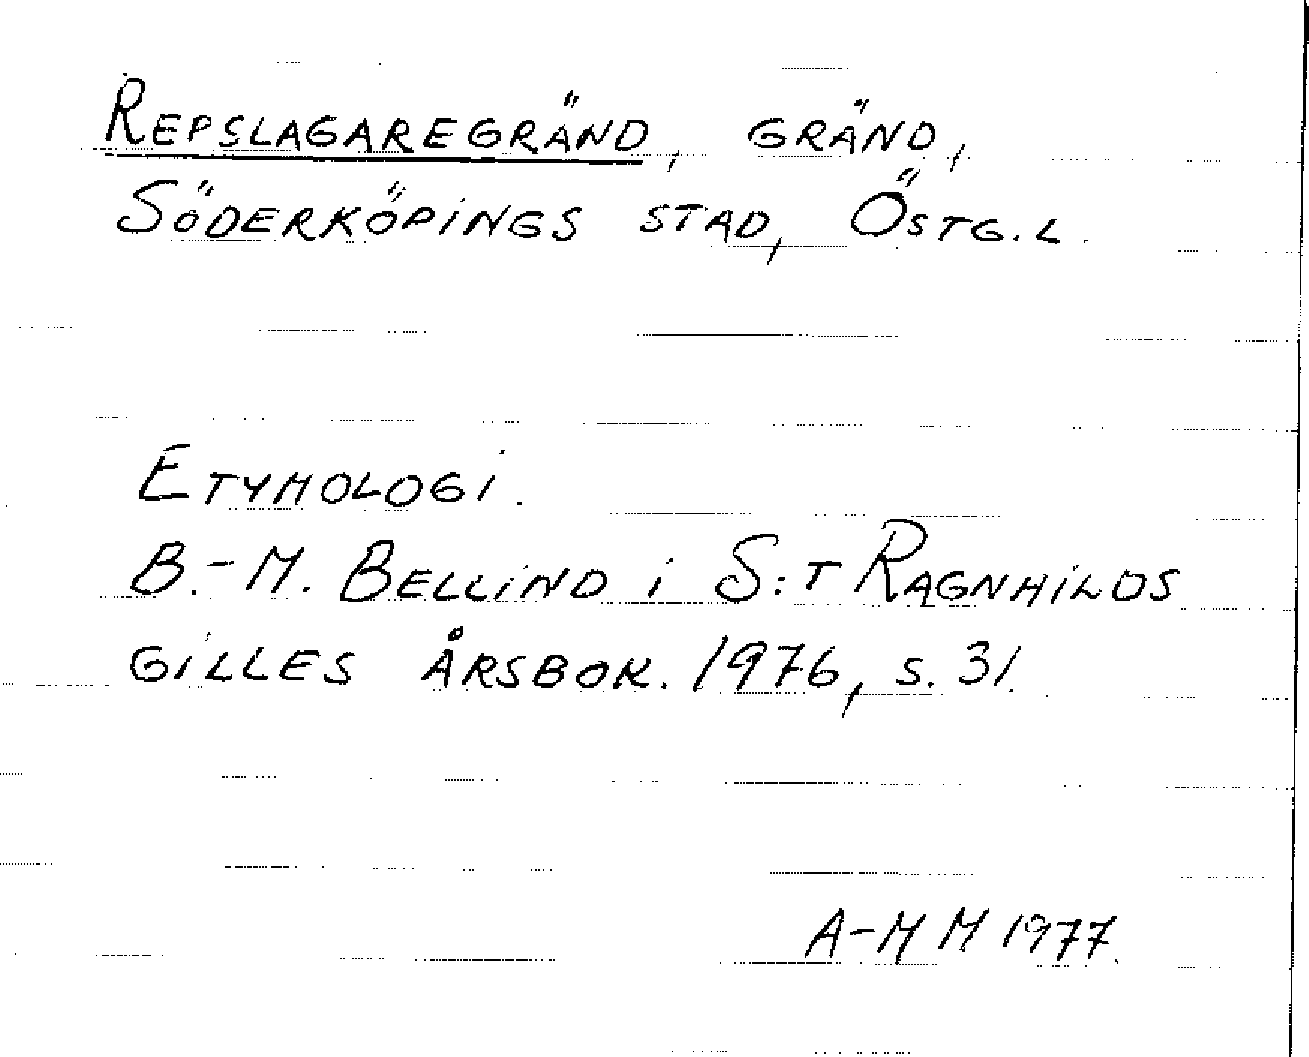 REPSLAGAREGRÄND, GRÄND,
SÖDERKÖPINGS STAD, ÖSTG.L.
ETYMOLOGI.
B.-M. BELLIND i S:T RAGNHILDS
GILLES ÅRSBOK. 1976, s. 31.
A-M M 1977.